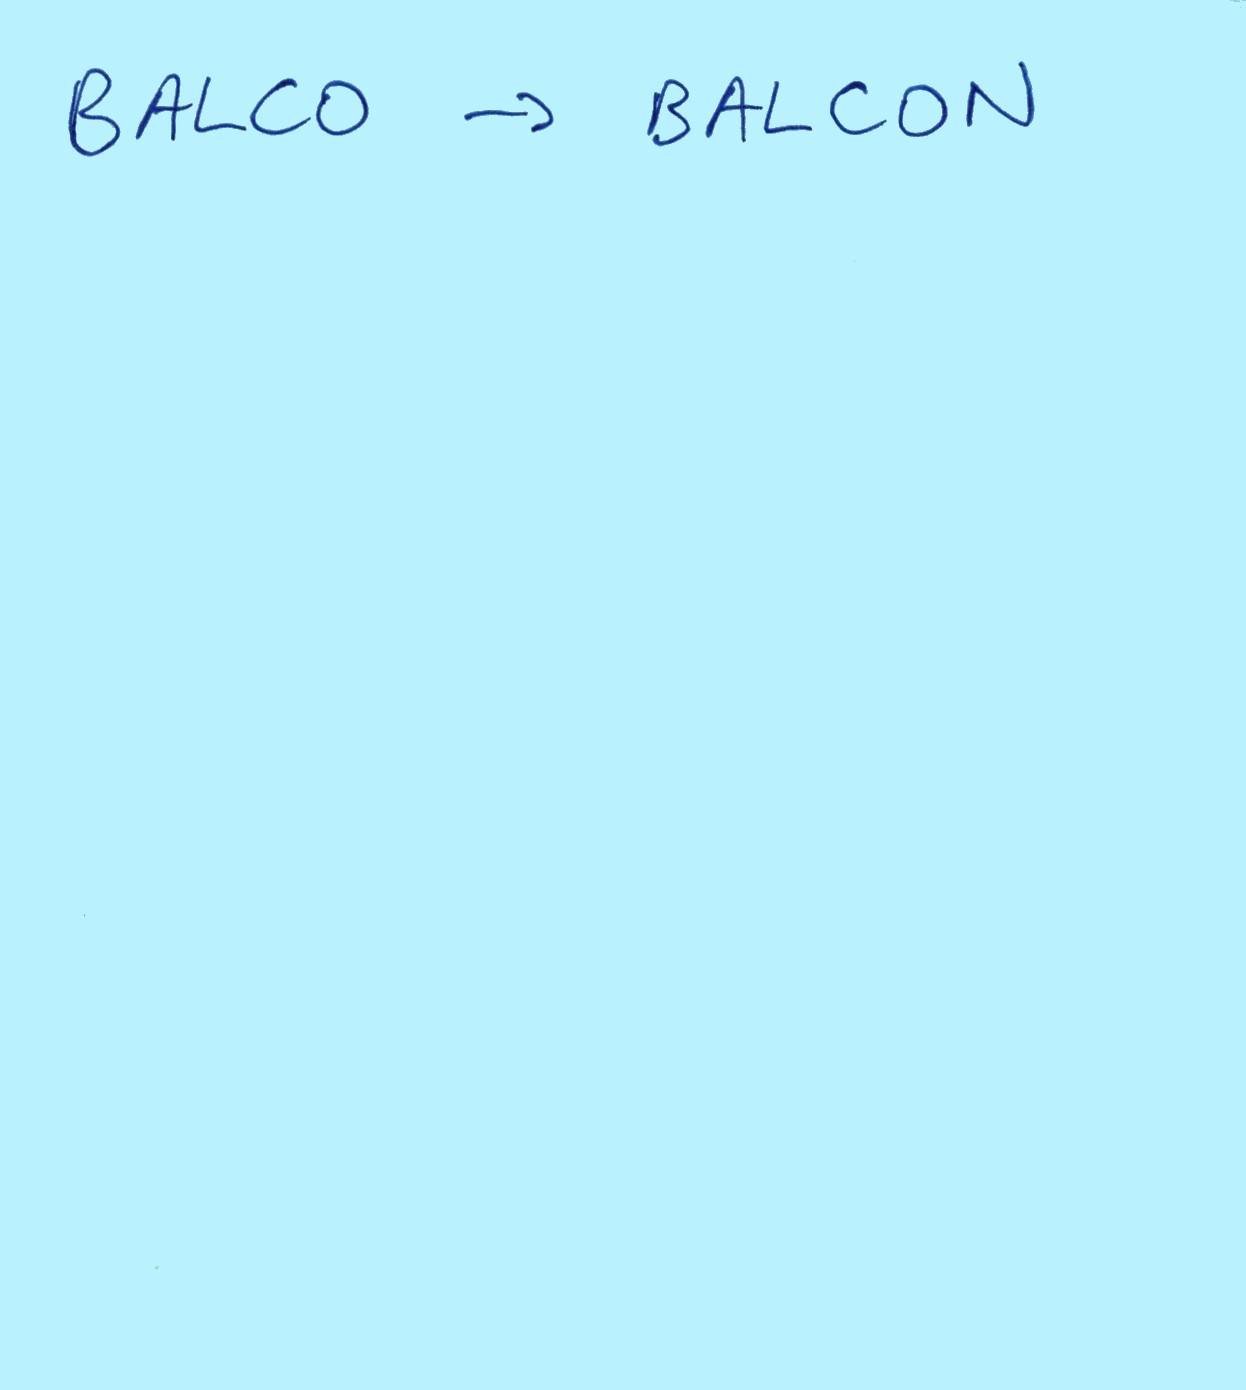 BALCO → BALCON